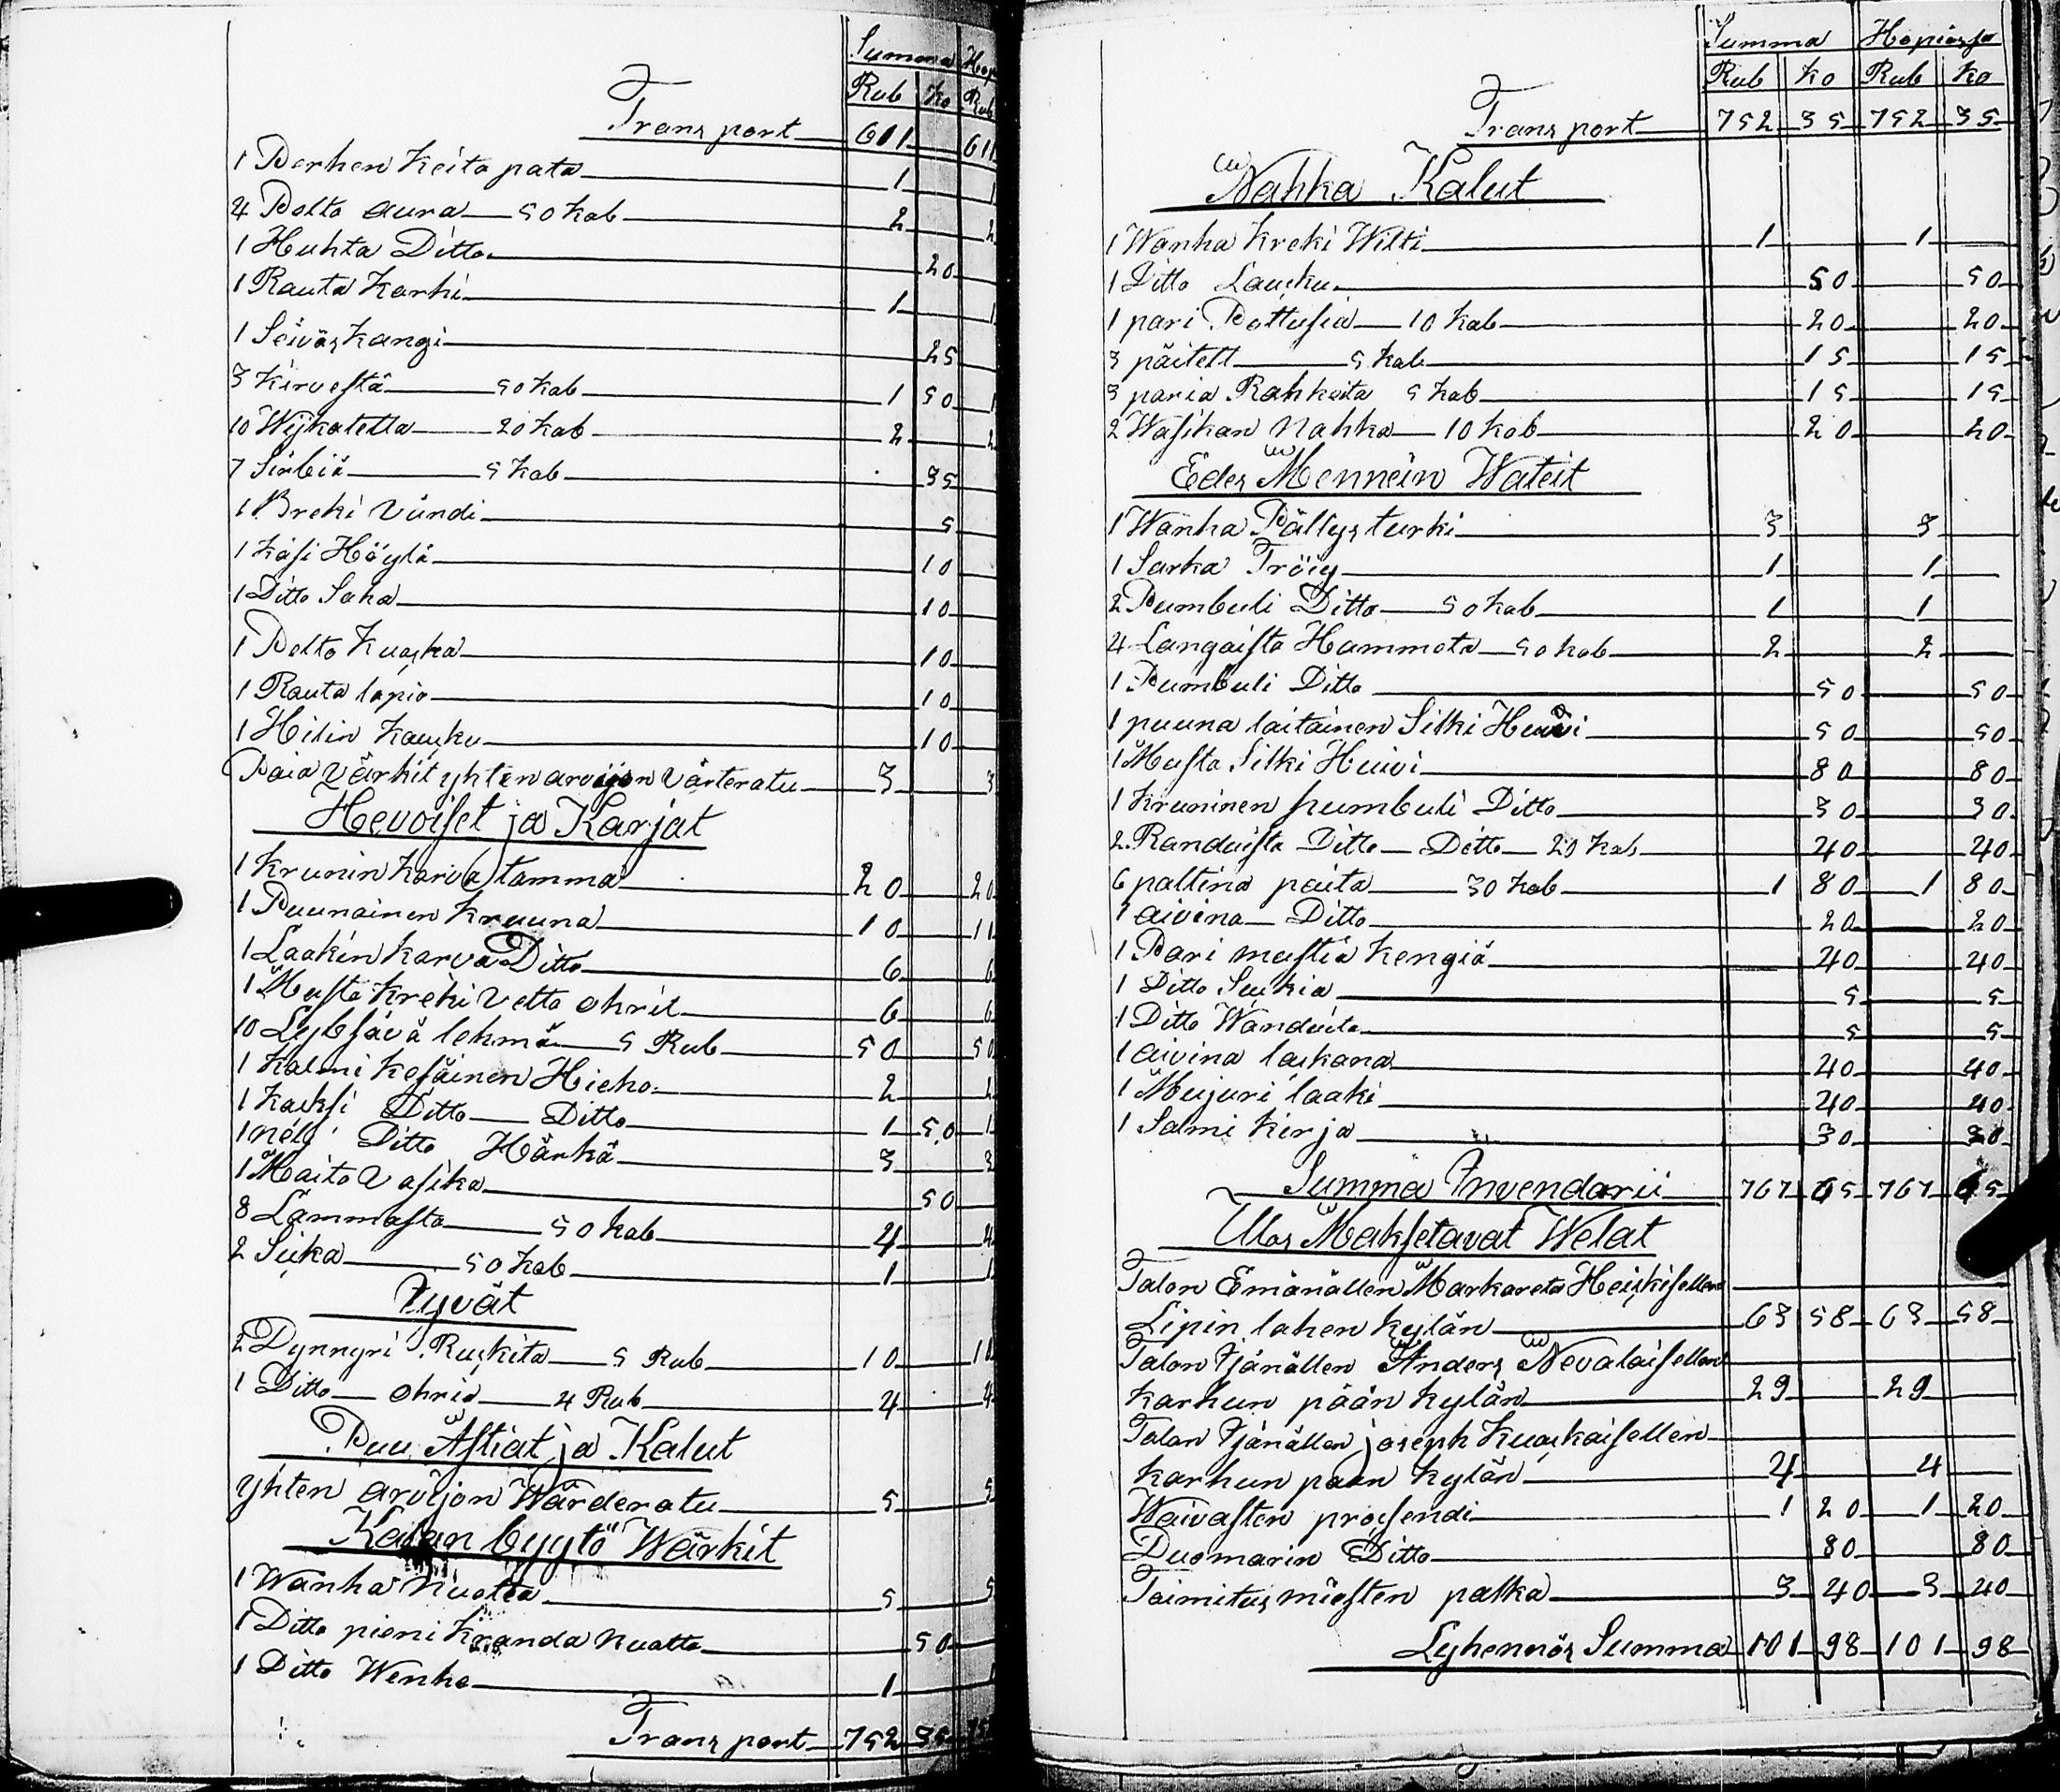 Summa Hop
Rub ko Rub
Transport 611 611
1 Perhen keito pata 1 1
4 Pelto aura 50 kob 2 2
1 Huhta Ditto 20
1 Rauta Karhi 1 1
1 Seiväs kangi 25
3 kirvestä 50 kob 1 50 1
10 Wijkatetta 20 kob 2 2
7 Sirbiä 5 kob 35
1 Preki Vündi 5
1 käsi Höylä 10
1 Ditto Saha 10
1 Pelto Kuaska 10
1 Rauta lapio 10
1 Hilin kausku 10
Paia värkit yhten arvijon värteratu 3 3
Hevoiset ja Karjat
1 Krunin karva tamma 20 20
1 Puunainen Kruuna 10 11
1 Laakin karva Ditto 6 6
1 Musta kreki Vetto ohrit 6 6
10 Lybsävä lehmä 5 Rub 50 50
1 Kolmi kesäinen Hieho 2 2
1 kaksi Ditto Ditto 1 50 1
1 nelj Ditto Härkä 3 3
1 Maito Vasika 50
8 Lammasta 50 kob 4 4
2 Sika 50 kob 1 1
Jyvät
2 Dynnyri Ruskita 5 Rub 10 10
1 Ditto ohria 4 Rub 4 4
Puu Astiat ja Kalut
yhten arvijon Wärderatu 5 5
Kalan byytö Wärkit
1 Wanha Nuotta 5 5
1 Ditto pieni Kranda nuotta 50
1 Ditto Wenhe 1 1
Transport 752 35 752
Summa Hopiassa
Rub ko Rub ko
Transport 752 35 752 35
Nahka Kalut
1 Wanha kreki Wilti 1 1
1 Ditto Lausku 50 50
1 pari Pöttusiä 10 kob 20 20
3 päitett 5 kob 15 15
3 paria Rahkeita 5 kob 15 15
2 Wasikan Nahka 10 kob 20 20
Edes Mennein Wateit
1 Wanha Pällys turki 3 3
1 Sarka Tröiy 1 1
2 Pumbuli Ditto 50 kob 1 1
4 Langaista Hammeta 50 kob 2 2
1 Pumbuli Ditto 50 50
1 puuna laitainen Silki Huivi 50 50
1 Musta Silki Huivi 80 80
1 kruninen pumbuli Ditto 30 30
2 Randuista Ditto Ditto 20 kob 40 40
6 paltina paita 30 kob 1 80 1 80
1 aivina Ditto 20 20
1 Pari mustia kengiä 40 40
1 Ditto Sukia 5 5
1 Ditto Wanduita 5 5
1 aivina laskana 40 40
1 Meijuri laaki 40 40
1 Salmi kirja 30 30
Summa Invendarii 767 65 767 65
Ulos Maksetavat Welat
Talon Emänällen Markareta Heiskisellen
Lipin lahen kylän 63 58 63 58
Talon Isänällen Anders Nevalaisellen
karhun pään kylän 29 29
Talon Isänällen joseph Kuoskaisellen
karhun pään kylän 4 4
Waivasten prosendi 1 20 1 20
Duomarin Ditto 80 80
Toimitus miesten palka 3 40 3 40
Lyhennös Summa 101 98 101 98